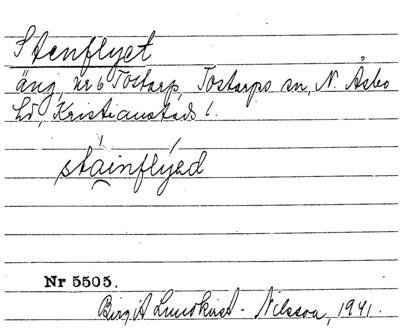 Stenflyet
äng, nr 6 Tostarp, Tostarps sn, N. Åsbo
hd, Kristianstads l.
stáinflýed
Nr 5505.
Birgit Lundkvist-Nilsson, 1941.